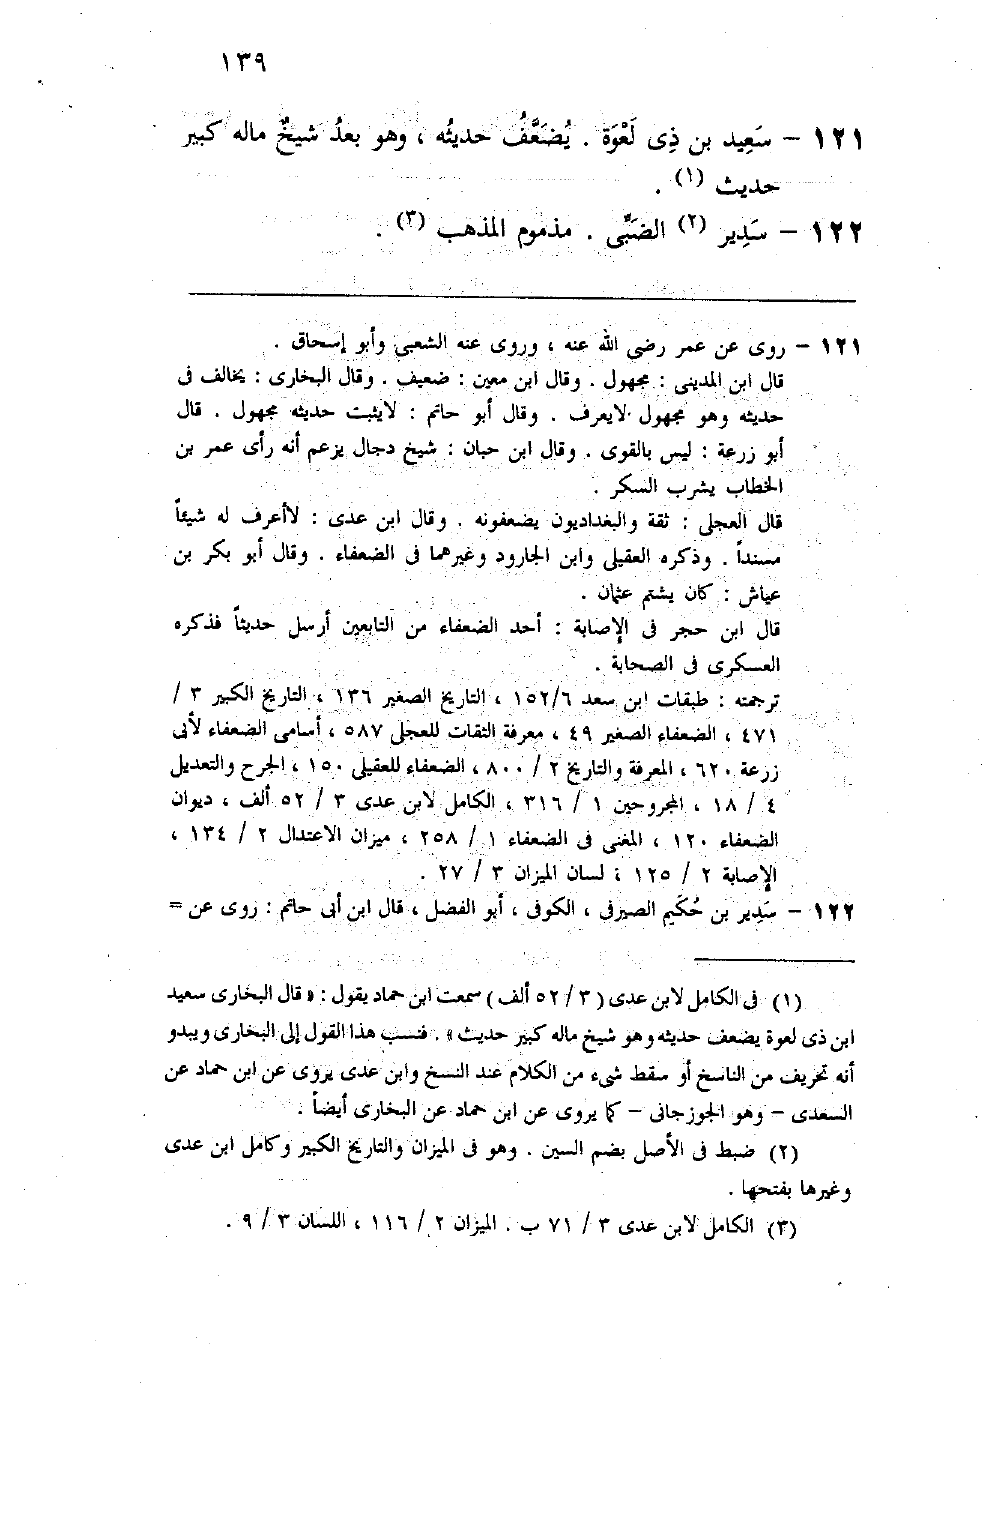 ١٣٩
١٢١ – سَعِيد بن ذِى لَعْوَة . يُضَعَّفُ حديثُه ، وهو بعدُ شيخٌ ماله كبير
حديث (١) .
١٢٢ – سَدِير (٢) الضَبِّى . مذموم المذهب (٣) .
١٢١ – روى عن عمر رضى الله عنه ، وروى عنه الشعبى وأبو إسحاق .
قال ابن المدينى : مجهول . وقال ابن معين : ضعيف . وقال البخارى : يخالف فى
حديثه وهو مجهول لايعرف . وقال أبو حاتم : لايثبت حديثه مجهول . قال
أبو زرعة : ليس بالقوى . وقال ابن حبان : شيخ دجال يزعم أنه رأى عمر بن
الخطاب يشرب السكر .
قال العجلى : ثقة والبغداديون يضعفونه . وقال ابن عدى : لاأعرف له شيئاً
مسنداً . وذكره العقيلى وابن الجارود وغيرهما فى الضعفاء . وقال أبو بكر بن
عياش : كان يشتم عثمان .
قال ابن حجر فى الإصابة : أحد الضعفاء من التابعين أرسل حديثاً فذكره
العسكرى فى الصحابة .
ترجمته : طبقات ابن سعد ١٥٢/٦ ، التاريخ الصغير ١٣٦ ، التاريخ الكبير ٣ /
٤٧١ ، الضعفاء الصغير ٤٩ ، معرفة الثقات للعجلى ٥٨٧ ، أسامى الضعفاء لأبى
زرعة ٦٢٠ ، المعرفة والتاريخ ٢ / ٨٠٠ ، الضعفاء للعقيلى ١٥٠ ، الجرح والتعديل
٤ / ١٨ ، المجروحين ١ / ٣١٦ ، الكامل لابن عدى ٣ / ٥٢ ألف ، ديوان
الضعفاء ١٢٠ ، المغنى فى الضعفاء ١ / ٢٥٨ ، ميزان الاعتدال ٢ / ١٣٤ ،
الإصابة ٢ / ١٢٥ ، لسان الميزان ٣ / ٢٧ .
١٢٢ – سَدِير بن حُكَيم الصيرفى ، الكوفى ، أبو الفضل ، قال ابن أبى حاتم : روى عن =
(١) فى الكامل لابن عدى ( ٣ / ٥٢ ألف ) سمعت ابن حماد يقول : « قال البخارى سعيد
ابن ذى لعوة يضعف حديثه وهو شيخ ماله كبير حديث » . فنسب هذا القول إلى البخارى ويبدو
أنه تحريف من الناسخ أو سقط شىء من الكلام عند النسخ وابن عدى يروى عن ابن حماد عن
السعدى – وهو الجوزجانى – كما يروى عن ابن حماد عن البخارى أيضاً .
(٢) ضبط فى الأصل بضم السين . وهو فى الميزان والتاريخ الكبير وكامل ابن عدى
وغيرها بفتحها .
(٣) الكامل لابن عدى ٣ / ٧١ ب . الميزان ٢ / ١١٦ ، اللسان ٣ / ٩ .